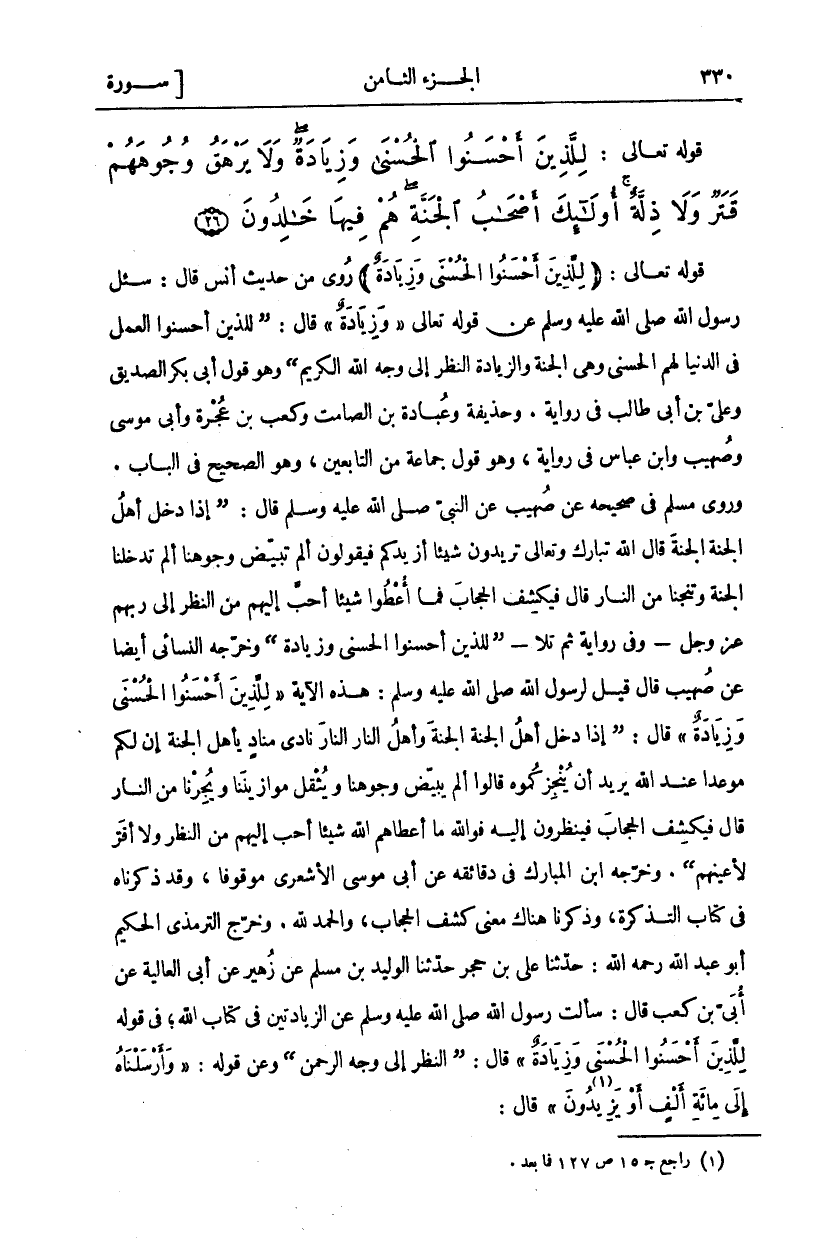 ٣٣٠ الجزء الثامن [ سورة
قوله تعالى : لِلَّذِينَ أَحْسَنُوا ٱلْحُسْنَىٰ وَزِيَادَةٌ ۖ وَلَا يَرْهَقُ وُجُوهَهُمْ
قَتَرٌ وَلَا ذِلَّةٌ ۚ أُولَـٰٓئِكَ أَصْحَـٰبُ ٱلْجَنَّةِ ۖ هُمْ فِيهَا خَـٰلِدُونَ ﴿٢٦﴾
قوله تعالى : ﴿ لِلَّذِينَ أَحْسَنُوا الْحُسْنَى وَزِيَادَةٌ ﴾ رُوى من حديث أنس قال : سئل
رسول الله صلى الله عليه وسلم عن قوله تعالى « وَزِيَادَةٌ » قال : ” للذين أحسنوا العمل
فى الدنيا لهم الحسنى وهى الجنة والزيادة النظر إلى وجه الله الكريم “ وهو قول أبى بكر الصديق
وعلىّ بن أبى طالب فى رواية . وحذيفة وعُبادة بن الصامت وكعب بن عُجْرة وأبى موسى
وصُهيب وابن عباس فى رواية ، وهو قول جماعة من التابعين ، وهو الصحيح فى الباب .
وروى مسلم فى صحيحه عن صُهيب عن النبىّ صلى الله عليه وسلم قال : ” إذا دخل أهلُ
الجنة الجنةَ قال الله تبارك وتعالى تريدون شيئا أزيدكم فيقولون ألم تبيّض وجوهنا ألم تدخلنا
الجنة وتنجنا من النار قال فيكشف الحجابَ فما أُعْطُوا شيئا أحبَّ إليهم من النظر إلى ربهم
عز وجل — وفى رواية ثم تلا — ” للذين أحسنوا الحسنى وزيادة “ وخرّجه النسائى أيضا
عن صُهيب قال قيل لرسول الله صلى الله عليه وسلم : هذه الآية « لِلَّذِينَ أَحْسَنُوا الْحُسْنَى
وَزِيَادَةٌ » قال : ” إذا دخل أهلُ الجنة الجنةَ وأهلُ النار النارَ نادى منادٍ يأهل الجنة إن لكم
موعدا عند الله يريد أن يُنْجِزكُموه قالوا ألم يبيّض وجوهنا ويُثْقل موازيننا ويُجِرْنا من النار
قال فيكشف الحجابَ فينظرون إليه فوالله ما أعطاهم الله شيئا أحب إليهم من النظر ولا أقرّ
لأعينهم “ . وخرّجه ابن المبارك فى دقائقه عن أبى موسى الأشعرى موقوفا ، وقد ذكرناه
فى كتاب التذكرة ، وذكرنا هناك معنى كشف الحجاب ، والحمد لله . وخرّج الترمذى الحكيم
أبو عبد الله رحمه الله : حدّثنا على بن حجر حدّثنا الوليد بن مسلم عن زُهير عن أبى العالية عن
أُبَىّ بن كعب قال : سألت رسول الله صلى الله عليه وسلم عن الزيادتين فى كتاب الله ؛ فى قوله
لِلَّذِينَ أَحْسَنُوا الْحُسْنَى وَزِيَادَةٌ » قال : ” النظر إلى وجه الرحمن “ وعن قوله : « وَأَرْسَلْنَاهُ
إِلَى مِائَةِ أَلْفٍ أَوْ يَزِيدُونَ (١) » قال :
(١) راجع جـ ١٥ ص ١٢٧ فما بعد .